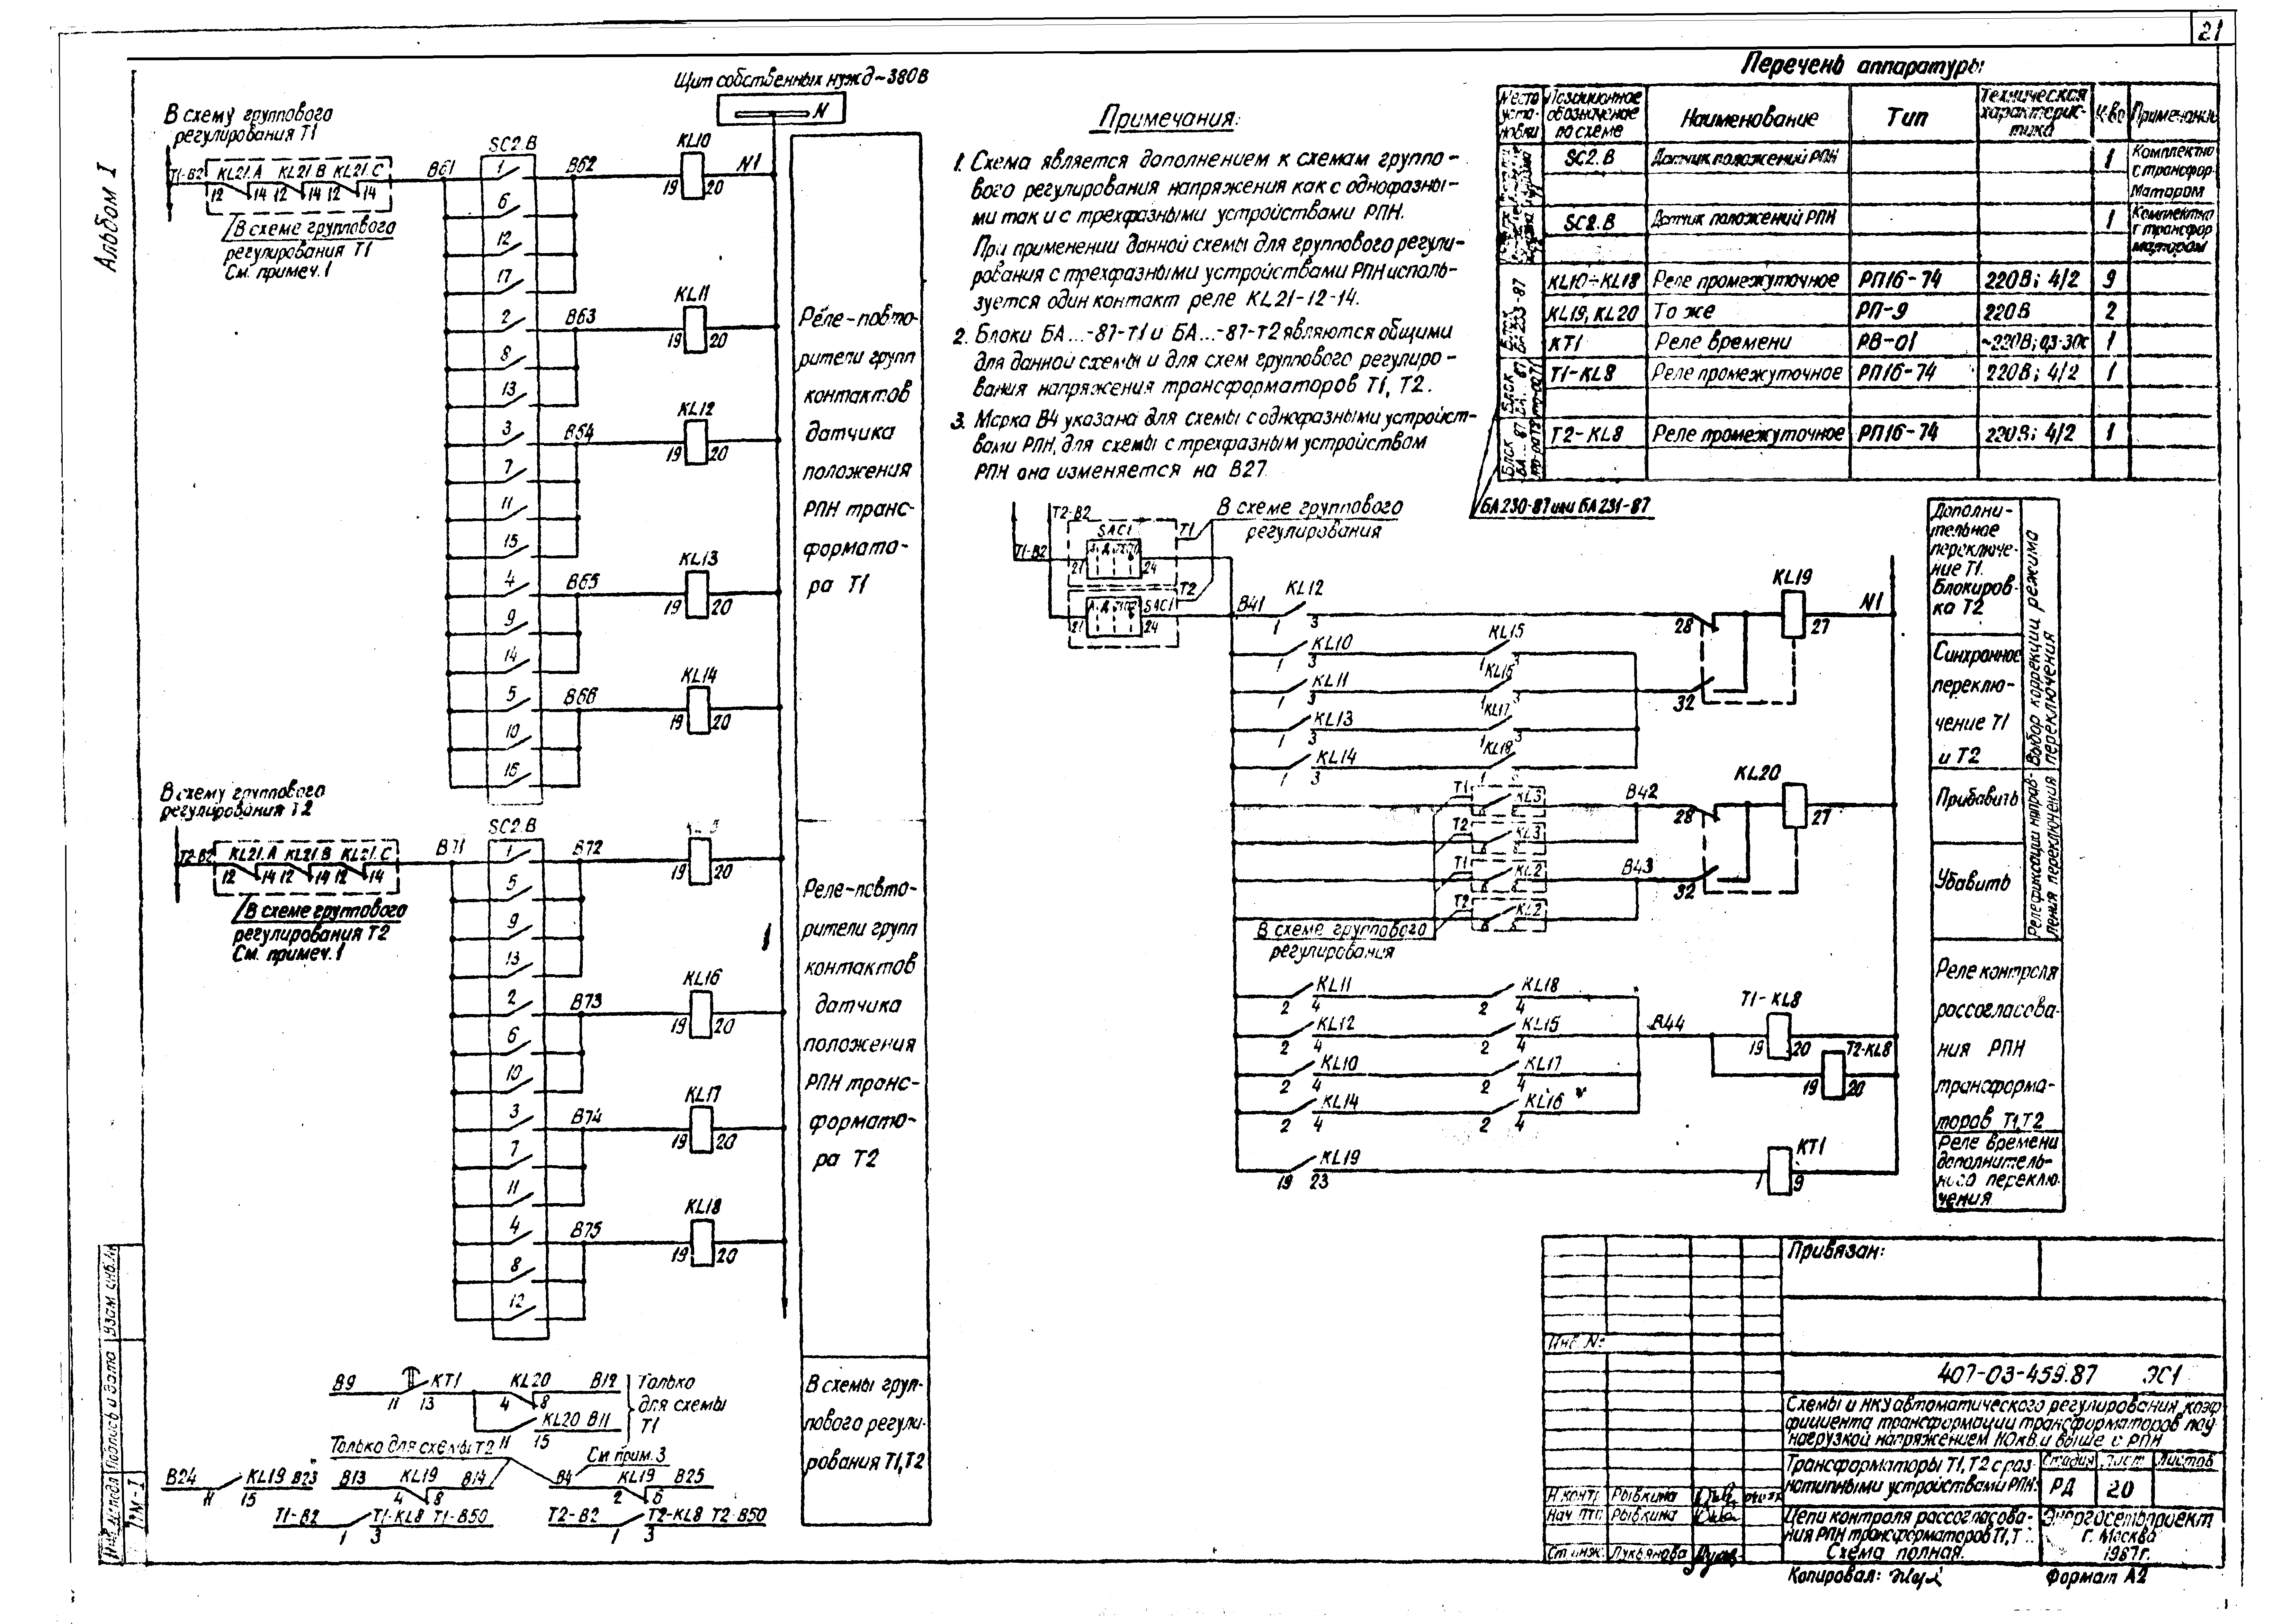 21
Альбом I
Щит собственных нужд ~380В
N
В схему группового
регулирования Т1
Т1-В2
KL21.A KL21.B KL21.C
12 14 12 14 12 14
В схеме группового
регулирования Т1
См. примеч.1
В61
SC2.В
1
6
12
17
2
8
13
3
7
11
15
4
9
14
5
10
16
В62
KL10
19 20
N1
В63
KL11
19 20
В64
KL12
19 20
В65
KL13
19 20
В66
KL14
19 20
Реле-повто-
рители групп
контактов
датчика
положения
РПН транс-
формато-
ра Т1
В схему группового
регулирования Т2
Т2-В2
KL21.A KL21.B KL21.C
12 14 12 14 12 14
В схеме группового
регулирования Т2
См. примеч.1
В71
SC2.В
1
5
9
13
2
6
10
3
7
11
4
8
12
В72
19 20
В73
KL16
19 20
В74
KL17
19 20
В75
KL18
19 20
Реле-повто-
рители групп
контактов
датчика
положения
РПН транс-
формато-
ра Т2
В9 КТ1 KL20 В12
11 13 4 8
KL20 В11
11 15
Только
для схемы
Т1
Только для схемы Т2
См прим. 3
В24 KL19 В23
11 15
В13 KL19 В14
4 8
В4 KL19 В25
2 6
Т1-В2 Т1-KL8 Т1-В50
1 3
Т2-В2 Т2-KL8 Т2-В50
1 3
В схемы груп-
пового регули-
рования Т1,Т2
Примечания:
1. Схема является дополнением к схемам группо-
вого регулирования напряжения как с однофазны-
ми так и с трехфазными устройствами РПН.
При применении данной схемы для группового регули-
рования с трехфазными устройствами РПН исполь-
зуется один контакт реле KL21-12-14.
2. Блоки БА...-87-Т1 и БА...-87-Т2 являются общими
для данной схемы и для схем группового регулиро-
вания напряжения трансформаторов Т1, Т2.
3. Марка В4 указана для схемы с однофазными устройст-
вами РПН, для схемы с трехфазным устройством
РПН она изменяется на В27.
Перечень аппаратуры
Место уста-новки
Позиционное обозначение по схеме
Наименование
Тип
Техническая характерис-тика
К-во
Примечание
SC2.В Датчик положений РПН 1 Комплектно с трансфор-матором
SC2.В Датчик положений РПН 1 Комплектно с трансфор матором
KL10÷KL18 Реле промежуточное РП16-74 220В; 4/2 9
KL19, KL20 То же РП-9 220В 2
КТ1 Реле времени РВ-01 ~220В; 0,3-30с 1
Т1-KL8 Реле промежуточное РП16-74 220В; 4/2 1
Т2-KL8 Реле промежуточное РП16-74 220В; 4/2 1
БА230-87 или БА231-87
Т2-В2
Т1-В2
SAC1
Т1
21 24
Т2
SAC1
21 24
В схеме группового
регулирования
В41 KL12
1 3
28
KL19
27
N1
KL10 KL15
1 3 1 3
KL11 KL16
1 3 1 3
32
KL13 KL17
1 3 1 3
KL14 KL18
1 3
Т1 KL3 В42
28
KL20
27
Т2 KL3
Т1 KL2 В43
32
Т2 KL2
В схеме группового
регулирования
KL11 KL18
2 4 2 4
KL12 KL15
2 4 2 4
В44
Т1-KL8
19 20
Т2-KL8
19 20
KL10 KL17
2 4 2 4
KL14 KL16
2 4 2 4
KL19
19 23
КТ1
1 9
Дополни-
тельное
переключе-
ние Т1.
Блокиров-
ка Т2
Синхронное
переклю-
чение Т1
и Т2
Прибавить
Убавить
Выбор коррекции режима
переключения
Реле фиксации направ-
ления переключения
Реле контроля
рассогласова-
ния РПН
трансформа-
торов Т1,Т2
Реле времени
дополнитель-
ного переклю-
чения
Привязан:
Инв. N:
407-03-459.87 ЭС1
Схемы и НКУ автоматического регулирования коэф
фициента трансформации трансформаторов под
нагрузкой напряжением 110кВ и выше с РПН
Трансформаторы Т1, Т2 с раз-
нотипными устройствами РПН.
Стадия Лист Листов
РД 20
Цепи контроля рассогласова-
ния РПН трансформаторов Т1, Т
Схема полная.
Энергосетьпроект
г. Москва
1987г.
Н контр Рывкина
Нач ПТП Рывкина
Ст инж. Лукьянова
Копировал:
Формат А2
Подпись и дата
Взам. инв. №